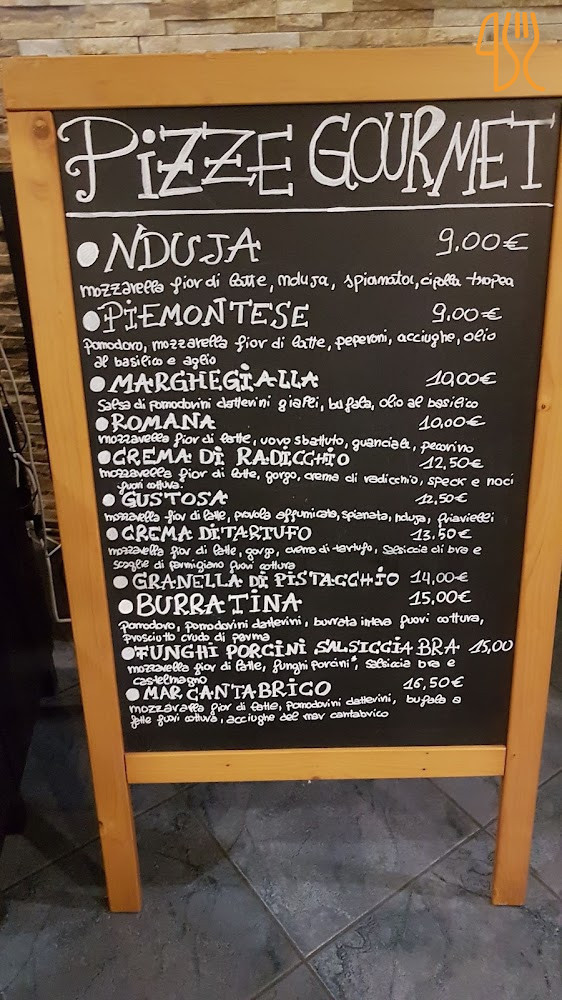 PIZZE GOURMET
• NDUJA 9.00€
mozzarella fior di latte, nduja, spianata, cipolla tropea
• PIEMONTESE 9,00€
pomodoro, mozzarella fior di latte, peperoni, acciughe, olio
al basilico e aglio
• MARGHEGIALLA 10,00€
Salsa di pomodorini datterini gialli, bufala, olio al basilico
• ROMANA 10,00€
mozzarella fior di latte, uovo sbattuto, guanciale, pecorino
• CREMA DI RADICCHIO 12,50€
mozzarella fior di latte, gorgo, crema di radicchio, speck e noci
fuori cottura.
• GUSTOSA 12,50€
mozzarella fior di latte, provola affumicata, spianata, nduja, friarielli
• CREMA DI TARTUFO 13,50€
mozzarella fior di latte, gorgo, crema di tartufo, salsiccia di bra e
scaglie di parmigiano fuori cottura
• GRANELLA DI PISTACCHIO 14,00€
• BURRATINA 15,00€
Pomodoro, pomodorini datterini, burrata intera fuori cottura,
prosciutto crudo di parma
• FUNGHI PORCINI SALSICCIA BRA 15,00
mozzarella fior di latte, funghi porcini*, salsiccia bra e
castelmagno
• MAR CANTABRICO 16,50€
mozzarella fior di latte, pomodorini datterini, bufala a
fette fuori cottura, acciughe del mar cantabrico